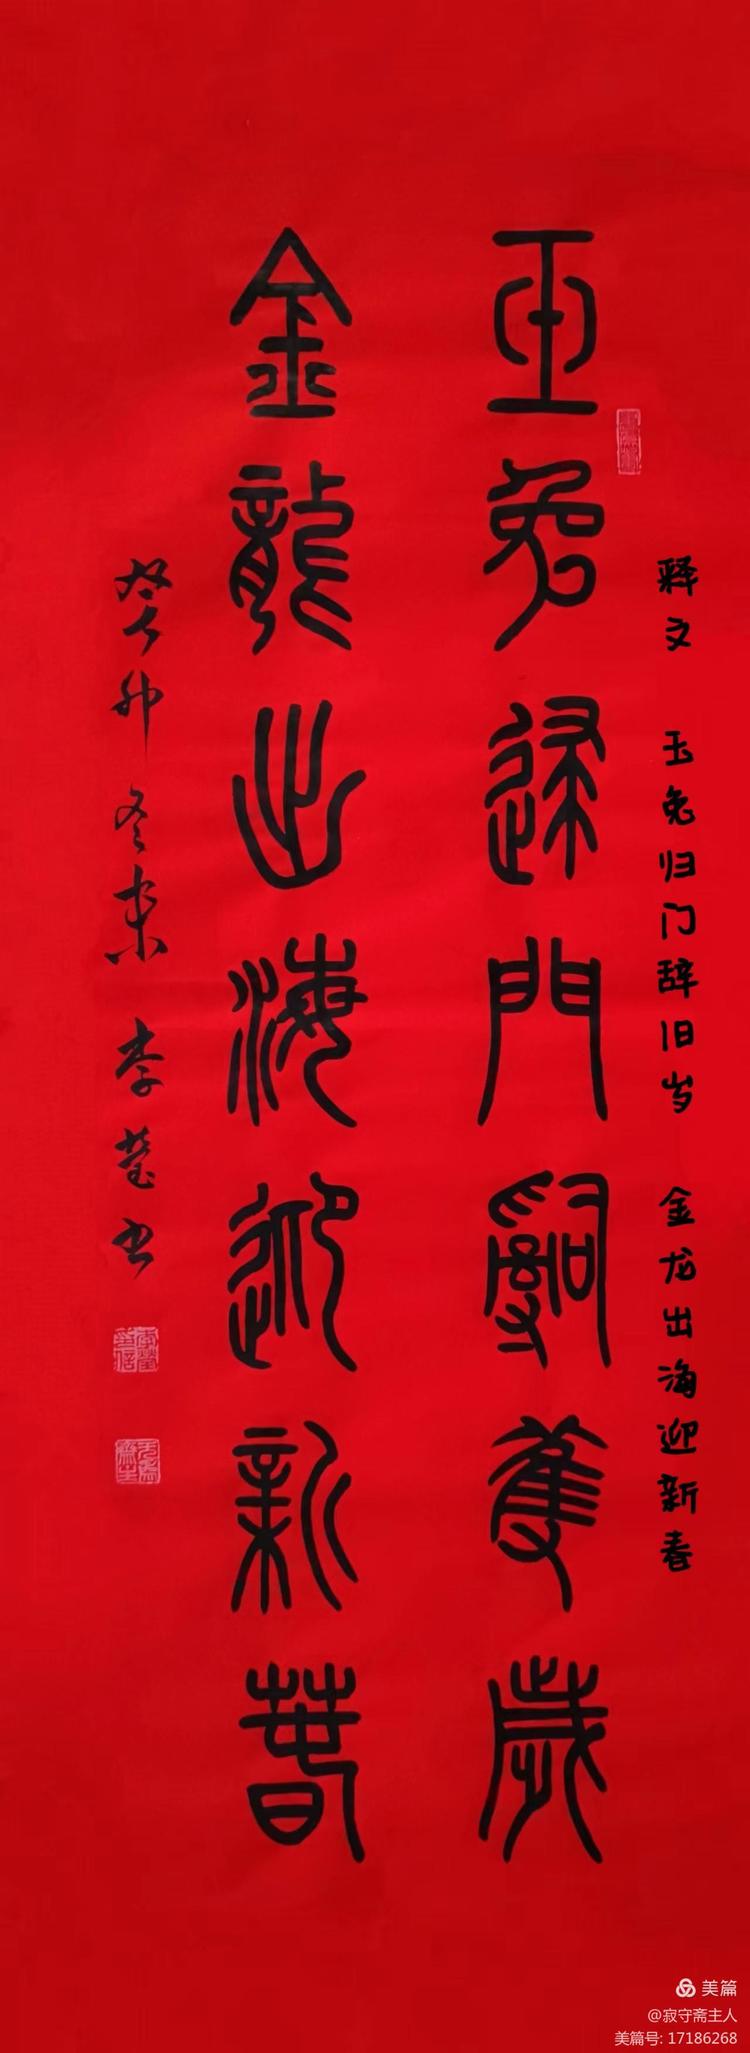 释文 玉兔归门辞旧岁 金龙出海迎新春
玉兔归門辭舊歲
金龍出海迎新春
癸卯冬末 李莹书
美篇
@寂守斋主人
美篇号: 17186268